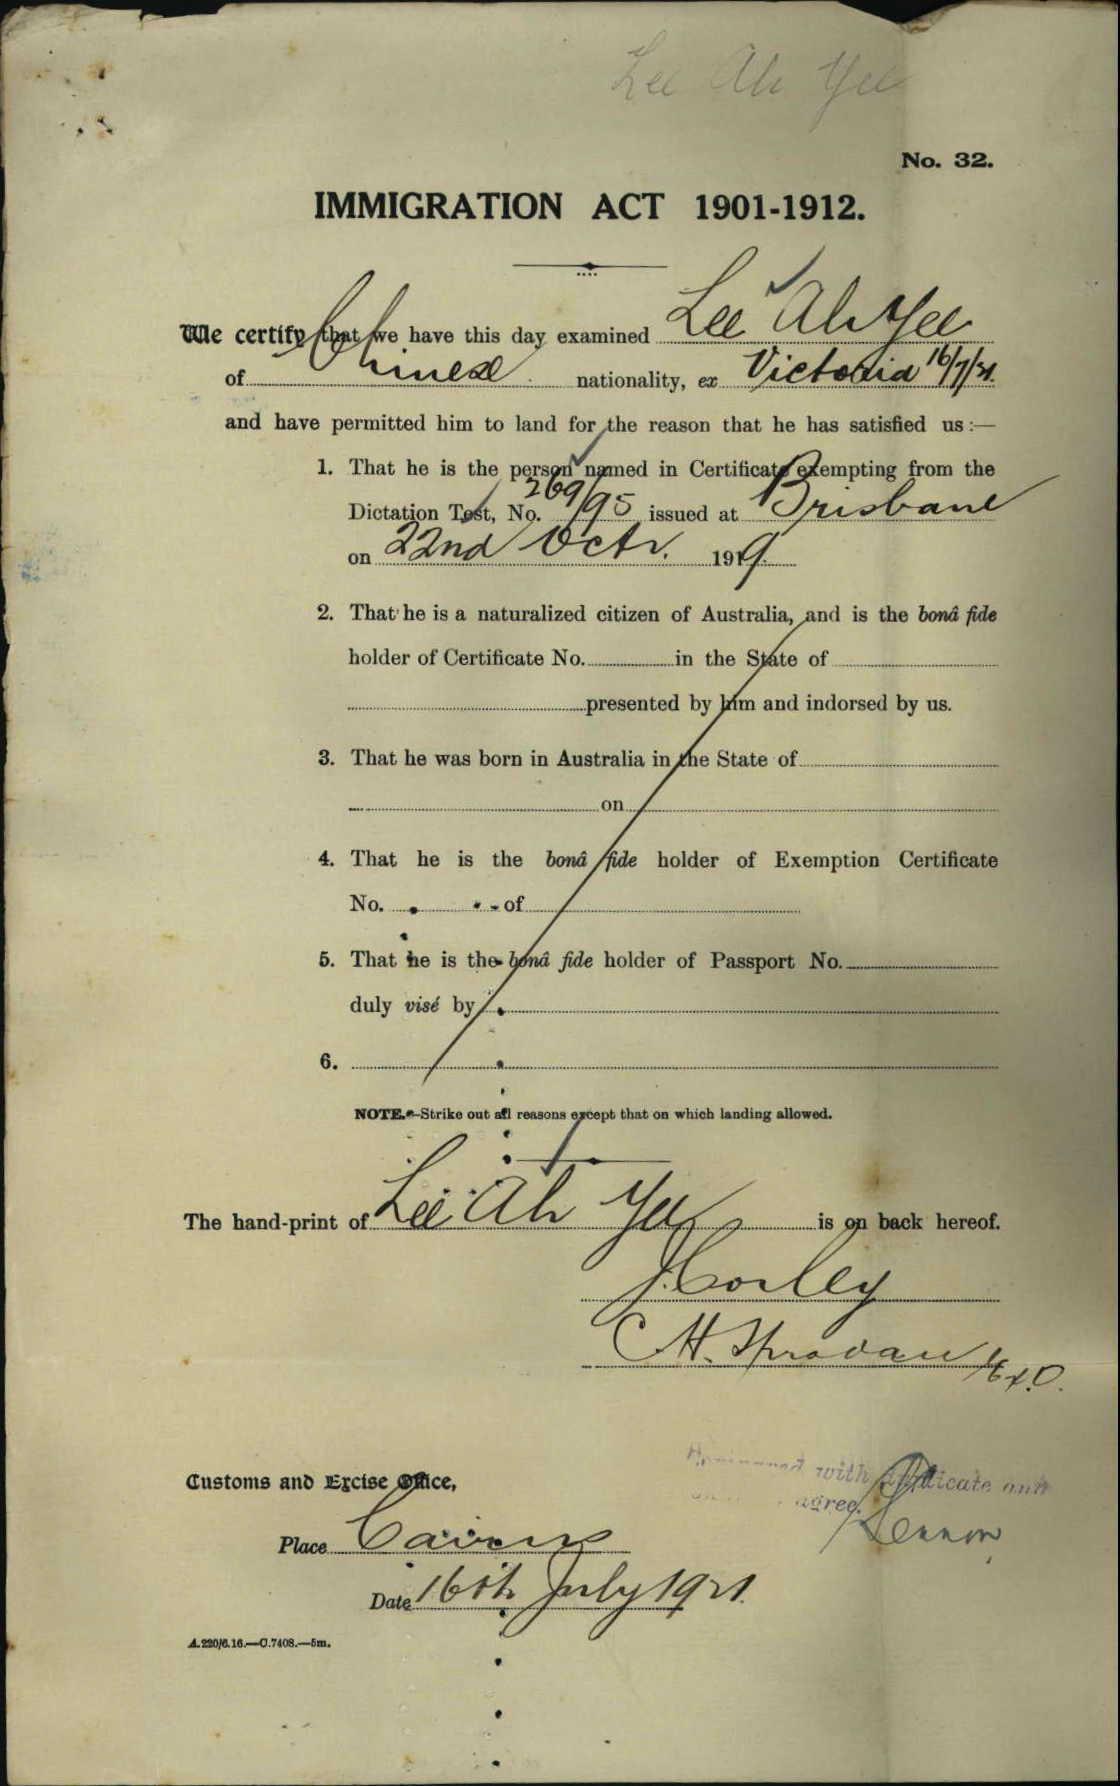 Lee Ah Yee
No. 32.
IMMIGRATION ACT 1901-1912.
We certify that we have this day examined Lee Ah Yee
of Chinese nationality, ex Victoria 16/7/21.
and have permitted him to land for the reason that he has satisfied us :—
1. That he is the person named in Certificate exempting from the
Dictation Test, No. 269/95 issued at Brisbane
on 22nd Octr. 1919.
2. That he is a naturalized citizen of Australia, and is the bonâ fide
holder of Certificate No. in the State of
presented by him and indorsed by us.
3. That he was born in Australia in the State of
on
4. That he is the bonâ fide holder of Exemption Certificate
No. of
5. That he is the bonâ fide holder of Passport No.
duly visé by
6.
NOTE.—Strike out all reasons except that on which landing allowed.
The hand-print of Lee Ah Yee is on back hereof.
J. Corley
C H.
Customs and Excise Office,
with duplicate and
agree.
Lennon
Place Cairns
Date 16th July 1921.
A.220/6.16.—C.7408.—5m.